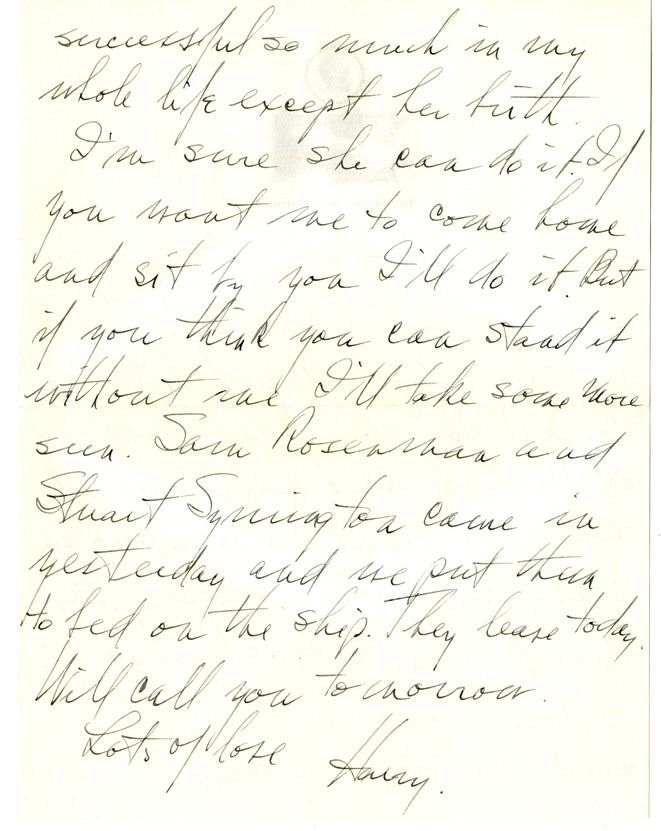 successful so much in my
whole life except her birth.
I'm sure she can do it. If
you want me to come home
and sit by you I'll do it. But
if you think you can stand it
without me I'll take some more
sun. Sam Rosenman and
Stuart Symington came in
yesterday and we put them
to bed on the ship. They leave today.
Will call you tomorrow.
Lots of love
Harry.